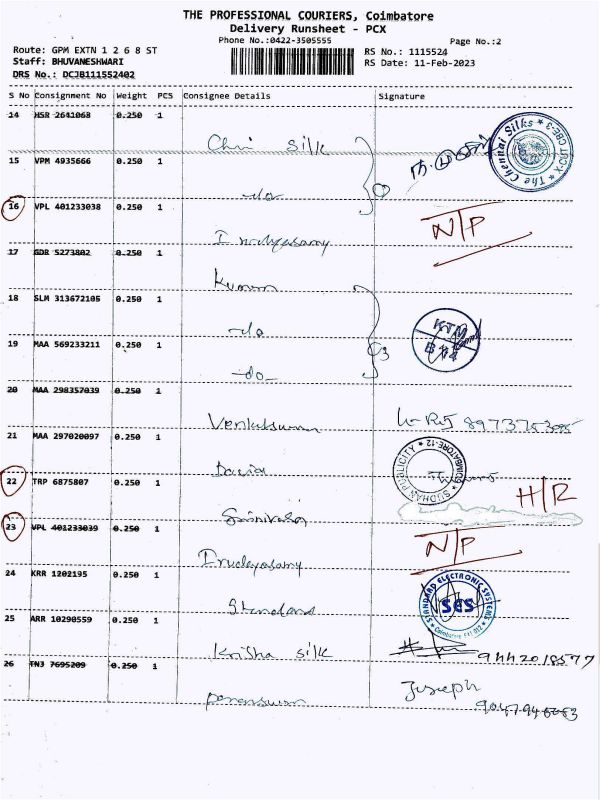 THE PROFESSIONAL COURIERS, Coimbatore
Delivery Runsheet - PCX
Phone No.:0422-3505555
Page No.:2
Route: GPM EXTN 1 2 6 8 ST
RS No.: 1115524
Staff: BHUVANESHWARI
RS Date: 11-Feb-2023
DRS No.: DCJB111552402
S No Consignment No Weight PCS Consignee Details Signature
14 HSR 2641063 0.250 1
silk
The Chennai Silks
15 VPM 4935666 0.250 1
-do-
16 VPL 401233038 0.250 1
N/P
17 GDR 5273802 0.250 1
Kumar
18 SLM 313672105 0.250 1
-do
KTM
19 MAA 569233211 0.250 1
3
-do-
20 MAA 298357039 0.250 1
21 MAA 297020097 0.250 1
SUDHAN PUBLICITY * COIMBATORE-12
22 TRP 6875807 0.250 1
H/R
Srinivasan
23 VPL 401233039 0.250 1
N/P
Irudayasamy
24 KRR 1202195 0.250 1
STANDARD ELECTRONIC SYSTEMS
SES
Standard
25 ARR 10290559 0.250 1
Krisha silk
9442018577
26 TN3 7695209 0.250 1
Joseph